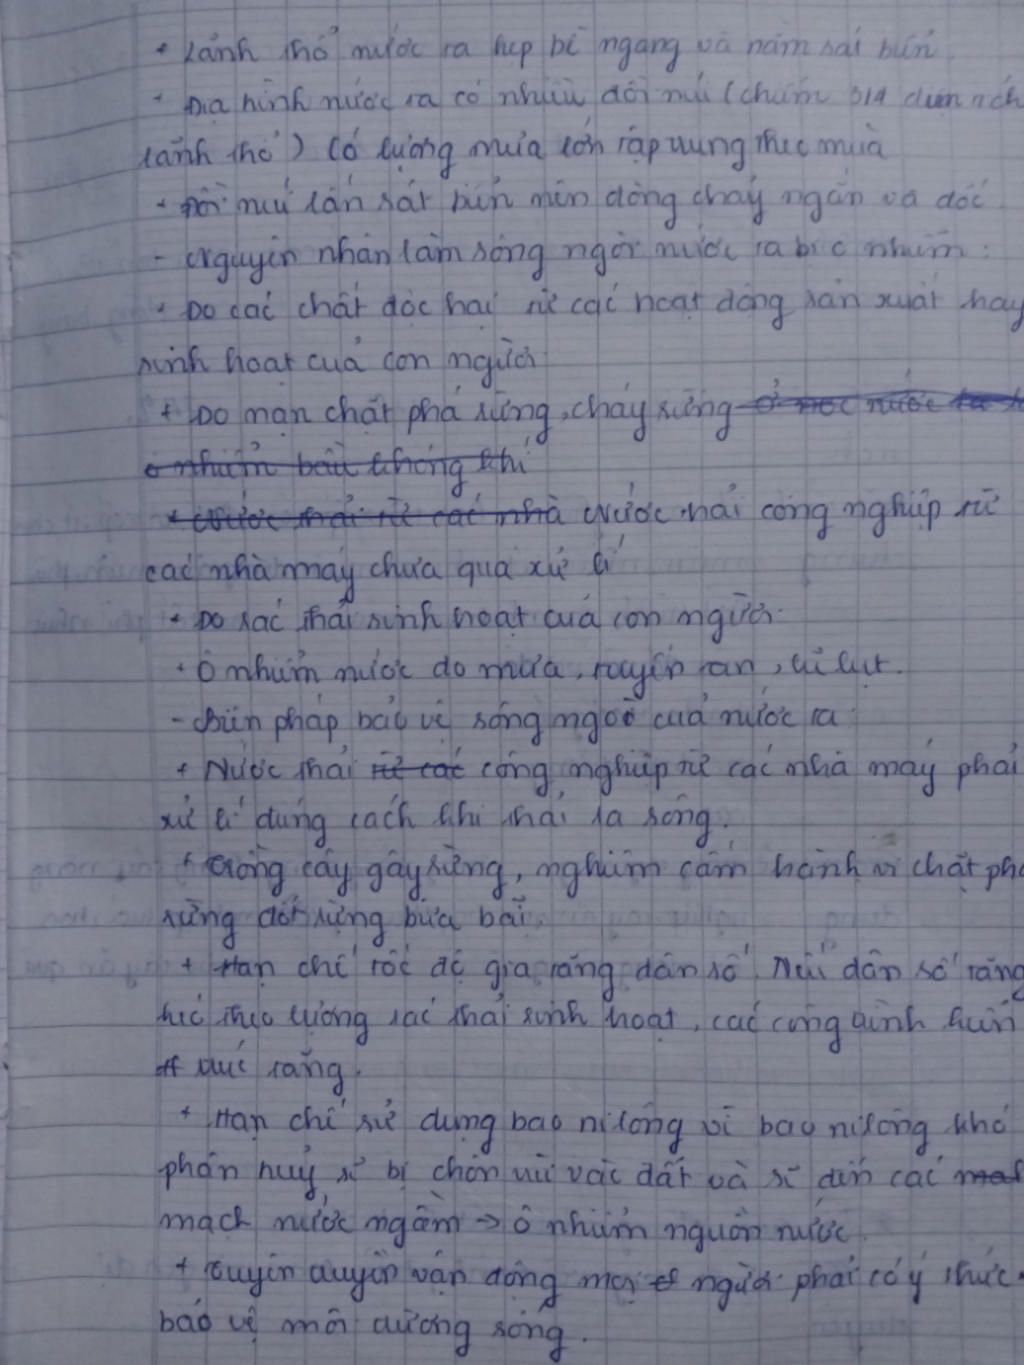 + Lãnh thổ nước ta hẹp bề ngang và nằm sát biển.
+ Địa hình nước ta có nhiều đồi núi (chiếm 3/4 diện tích
lãnh thổ) Có lượng mưa lớn tập trung theo mùa
+ Đồi núi lấn sát biển nên dòng chảy ngắn và dốc.
- Nguyên nhân làm sông ngòi nước ta bị ô nhiễm:
+ Do các chất độc hại từ các hoạt động sản xuất hay
sinh hoạt của con người
+ Do nạn chặt phá rừng, cháy rừng
ô nhiễm bầu không khí
Nước thải từ các nhà Nước thải công nghiệp từ
các nhà máy chưa qua xử lí
+ Do rác thải sinh hoạt của con người
+ Ô nhiễm nước do mưa, tuyết tan, lũ lụt.
- Biện pháp bảo vệ sông ngòi của nước ta
+ Nước thải từ các công nghiệp từ các nhà máy phải
xử lí đúng cách khi thải ra sông.
+ Trồng cây gây rừng, nghiêm cấm hành vi chặt phá
rừng đốt rừng bừa bãi
+ Hạn chế tốc độ gia tăng dân số. Nếu dân số tăng
kéo theo lượng rác thải sinh hoạt, các công trình
tăng.
+ Hạn chế sử dụng bao nilông vì bao nilông khó
phân huỷ sẽ bị chôn vùi vào đất và sẽ đến các
mạch nước ngầm → ô nhiễm nguồn nước.
+ Tuyên truyền vận động mọi người phải có ý thức
bảo vệ môi trường sống.